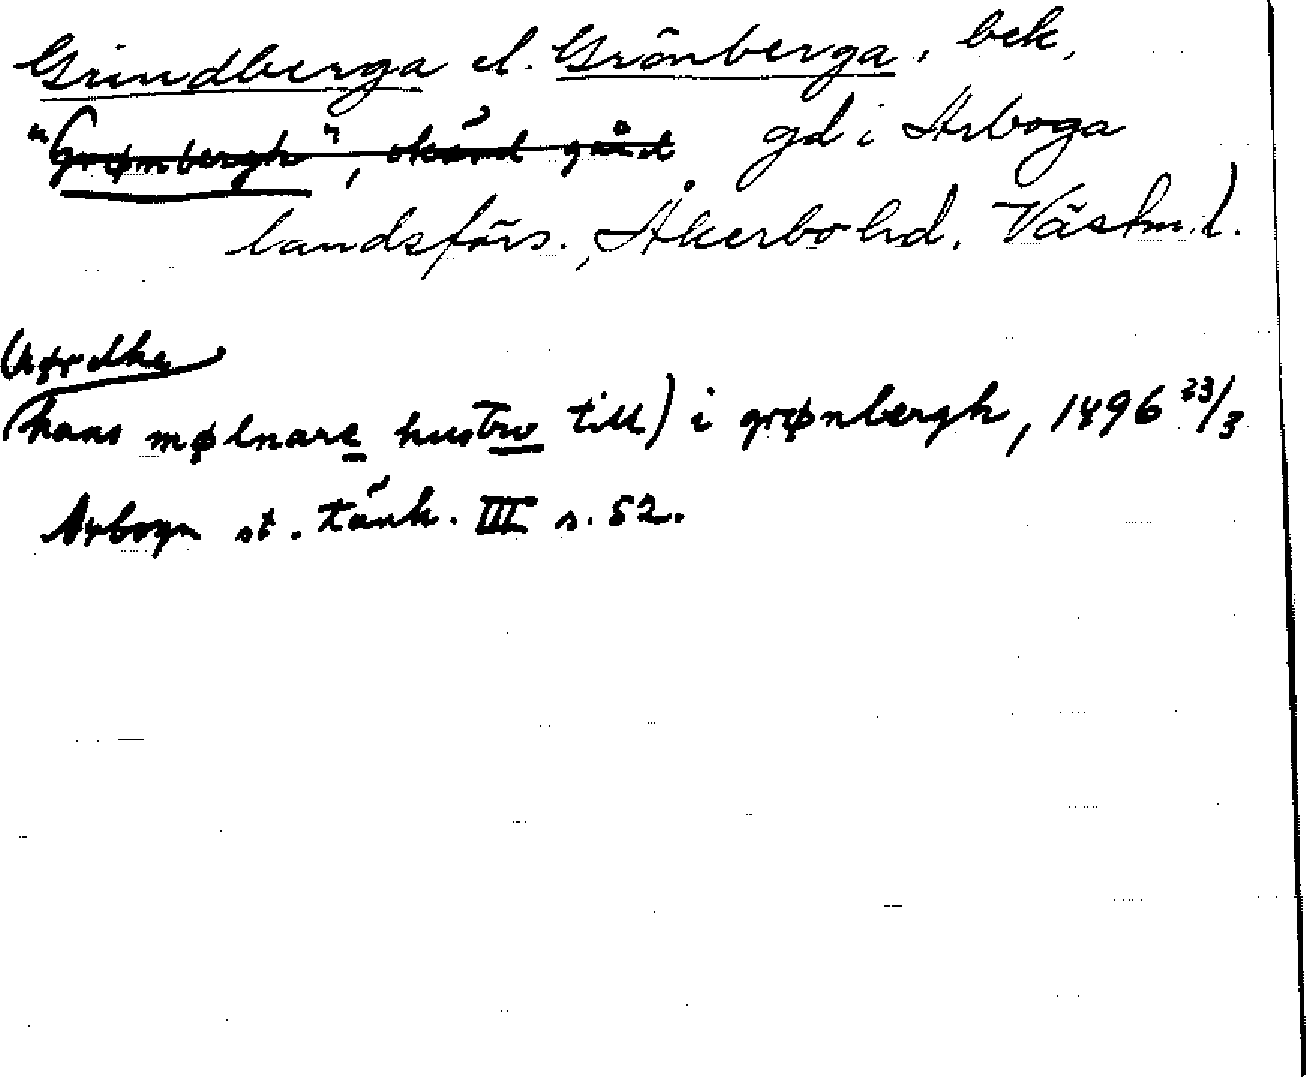 Grindberga el. Grönberga, bek.
"Grømbergh", okänd gård gd i Arboga
landsförs., Åkerbo hd. Västm. l.
(hans mølnare hustrv till) i grønbergh, 1496 23/3
Arboga st. tänk. III s. 52.